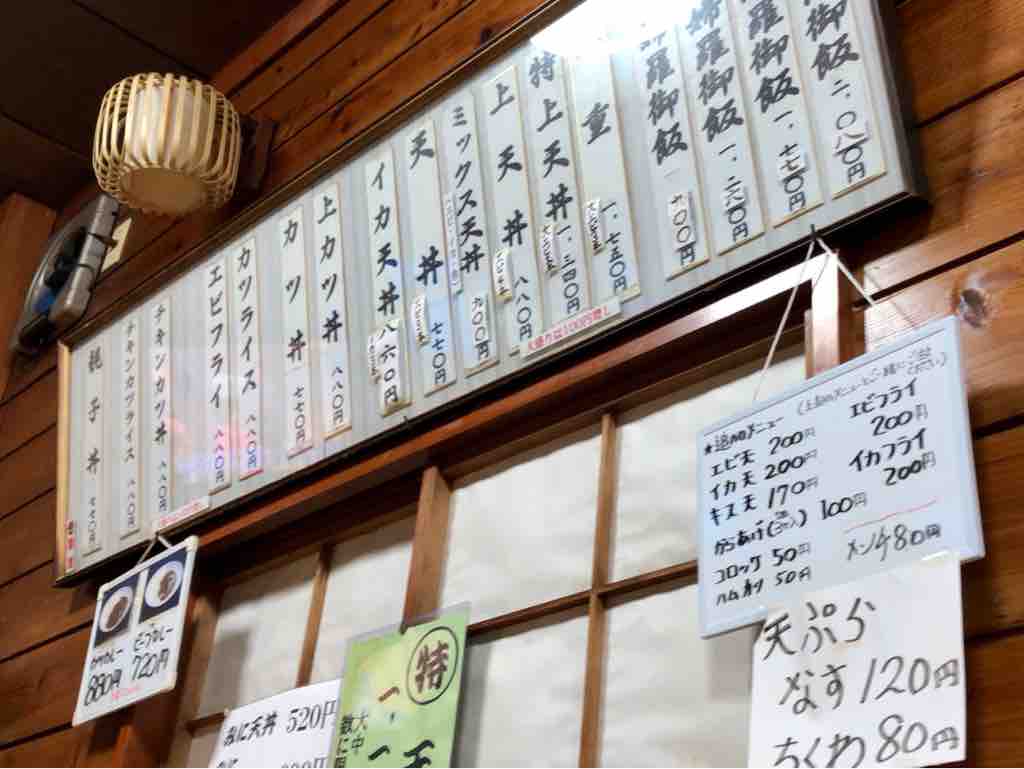 御飯 二、〇八〇円
羅御飯 一、七七〇円
羅御飯 一、二六〇円
羅御飯 九〇〇円
重 一、七五〇円
特上天丼 一、三四〇円
上天丼 八八〇円
ミックス天丼 九〇〇円
天丼 七七〇円
イカ天丼 八六〇円
上カツ丼 八八〇円
カツ丼 七七〇円
カツライス 八八〇円
エビフライ 八八〇円
チキンカツ丼 八八〇円
チキンカツライス 八八〇円
親子丼 七七〇円
大盛りは100円増し
★追加メニュー
エビ天 200円
イカ天 200円
キス天 170円
からあげ 100円
コロッケ 50円
ハムカツ 50円
エビフライ
200円
イカフライ
200円
メンチ80円
天ぷら
なす120円
ちくわ80円
カツカレー
880円
ビーフカレー
720円
おに天丼 520円
特